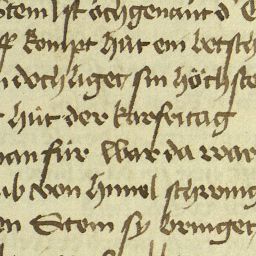 Stein Ist öch genant d
kompt hüt ein betsch
doch liget sin höchste
hüt der karfritag
man für War da war
von himel schwing
en Stein sy bringet